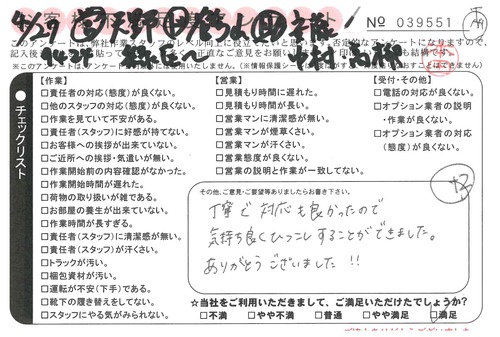 № 039551
このアンケートは、弊社作業スタッフのレベル向上に役立てたいと思います。否定的なアンケートになりますので、
【作業】
□責任者の対応(態度)が良くない。
□他のスタッフの対応(態度)が良くない。
□作業を見ていて不安がある。
□責任者(スタッフ)に好感が持てない。
□お客様への挨拶が出来ていない。
□ご近所への挨拶・気遣いが無い。
□作業開始前の内容確認がなかった。
□作業開始時間が遅れた。
□荷物の取り扱いが雑である。
□お部屋の養生が出来ていない。
□作業時間が長すぎる。
□責任者(スタッフ)に清潔感が無い。
□責任者(スタッフ)が汗くさい。
□トラックが汚い。
□梱包資材が汚い。
□運転が不安(下手)である。
□靴下の履き替えをしてない。
□スタッフにやる気が感じられない。
【営業】
□見積もり時間に遅れた。
□見積もり時間が長い。
□営業マンに清潔感が無い。
□営業マンが煙草くさい。
□営業マンが汗くさい。
□営業態度が良くない。
□営業の説明と作業が一致してない。
【受付・その他】
□電話の対応が良くない。
□オプション業者の説明
・作業が良くない。
□オプション業者の対応
(態度)が良くない。
チェックリスト
その他、ご意見・ご要望等ありましたらお書き下さい。
丁寧で対応も良かったので
気持ち良くひっこしすることができました。
ありがとうございました!!
☆当社をご利用いただきまして、ご満足いただけたでしょうか?
□不満 □やや不満 □普通 □やや満足 □満足